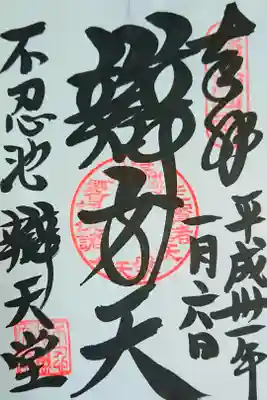 奉拝
平成卅一年
一月六日
辯才天
不忍池辯天堂